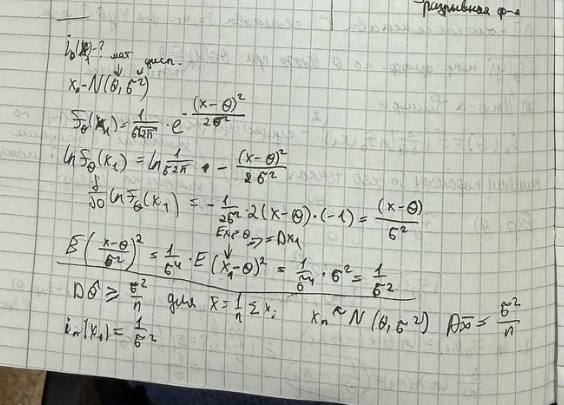 разрывная ф-я
i₀(x₁)-?
мат дисп.
x₁~N(θ, σ²)
f_θ(x₁) = 1/(σ√2π) · e^(-(x-θ)²/2σ²)
ln f_θ(x₁) = ln 1/(σ√2π) - (x-θ)²/2σ²
δ/δθ ln f_θ(x₁) = -1/2σ² · 2(x-θ)·(-1) = (x-θ)/σ²
Ex=θ => = Dx₁
E((x-θ)/σ²)² = 1/σ⁴ · E(x₁-θ)² = 1/σ⁴ · σ² = 1/σ²
Dθ̂ ≥ σ²/n для x̄ = 1/n Σ xᵢ xₙ ~ N(θ, σ²) Dx̄ = σ²/n
iₙ(x₁) = 1/σ²